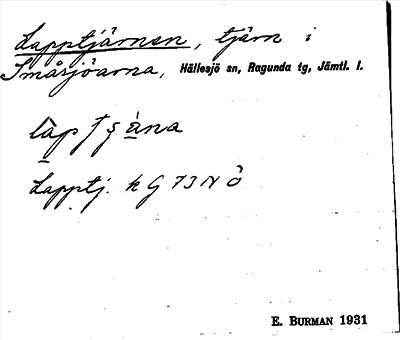 Lapptjärnen, tjärn i
Småsjöarna, Hällesjö sn, Ragunda tg, Jämtl. l.
Lapptj. k G 73 N Ö
E. BURMAN 1931